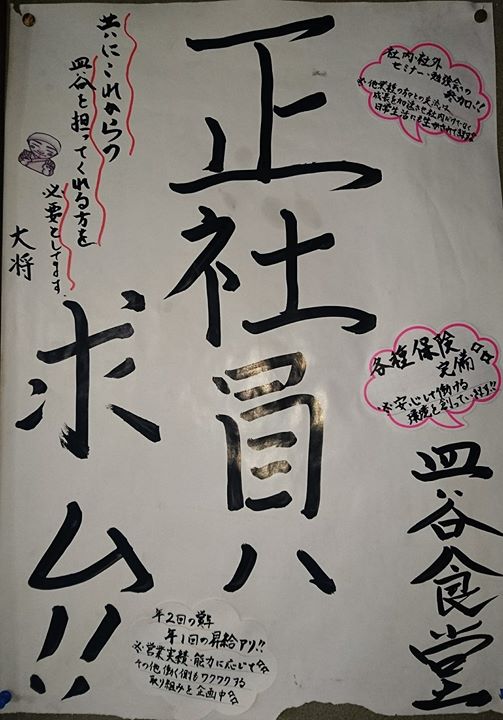 社内・社外
セミナー・勉強会の
※他業種の方々との交流は、
成長を加速させ社内だけでなく
日常生活にも生かされてきます
各種保険
完備
※安心して働ける
環境を創っています!!
皿谷食堂
正社員
求ム!!
共にこれからの
皿谷を担ってくれる方を
必要としてます。
大将
年2回の賞与
年1回の昇給アリ!!
※営業実績・能力に応じて
その他働く側もワクワクする
取り組みを企画中